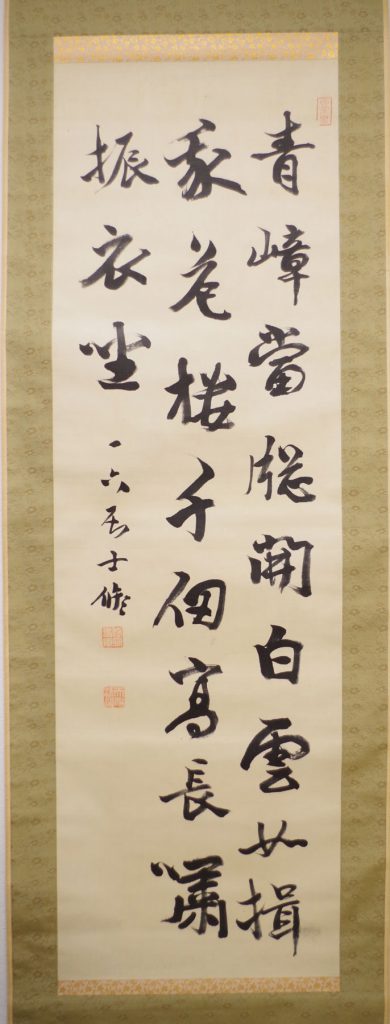 青嶂當牕開白雲如揖
我危樓千仞高長嘯
振衣坐
一六居士脩